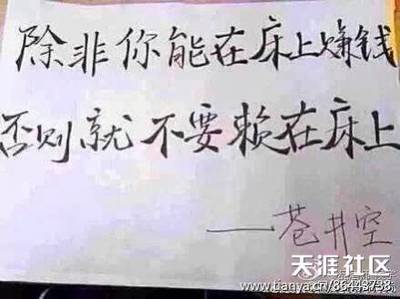 除非你能在床上赚钱
否则就不要赖在床上
——苍井空
天涯社区
www.tianya.cn/86448738